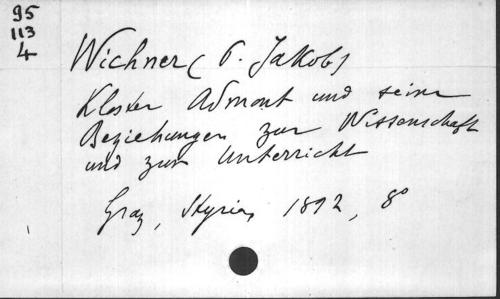 95
113
4
Wichner (P. Jakob)
Kloster Admont und seine
Beziehungen zur Wissenschaft
und zur Unterricht
Graz, Styria, 1892, 8°